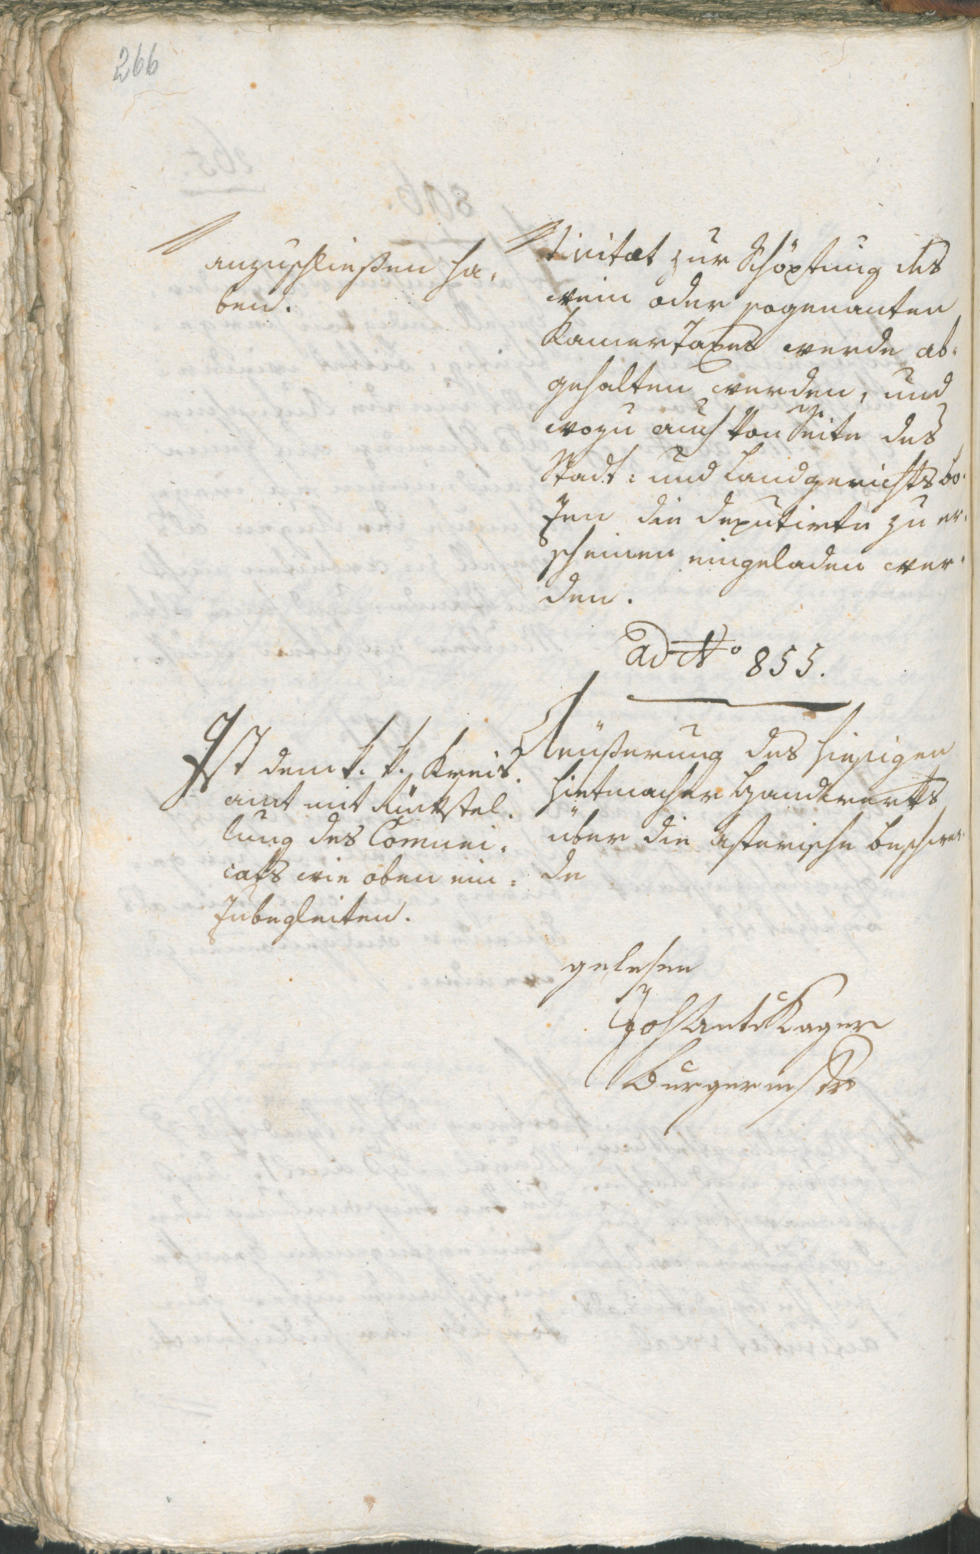 266
anzuschließen ha¬
ben.
tivitæt zur Schöpfung des
wein oder sogenanten
KamerTaxes werde ab¬
gehalten werden, und
wozu auch von Seite des
Stadt: und Landgerichts bo¬
zen die deputirte zu er¬
scheinen eingeladen wer¬
den.
ad No 855.
Ist dem k. k. Kreis¬
amt mit Rückstel¬
lung des Comuni¬
cats wie oben ein¬
zubegleiten.
Aeußerung des hiesigen
Huetmacher Handwerks
über die Beschwer¬
de
gelesen
Joh Ant Kager
Burgermstr